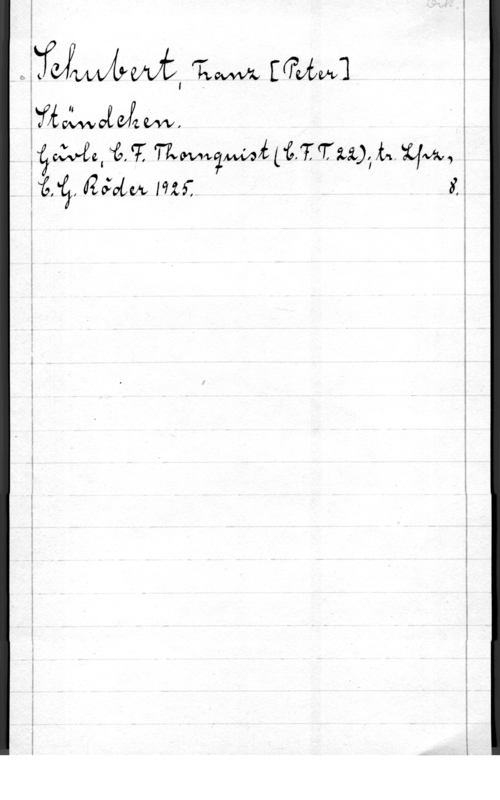 Schubert, Franz [Peter]
Ständchen.
Gävle, C. F. Thornquist (C. F. T. 22); tr. Lpz.,
C. G. Röder 1925. 8.